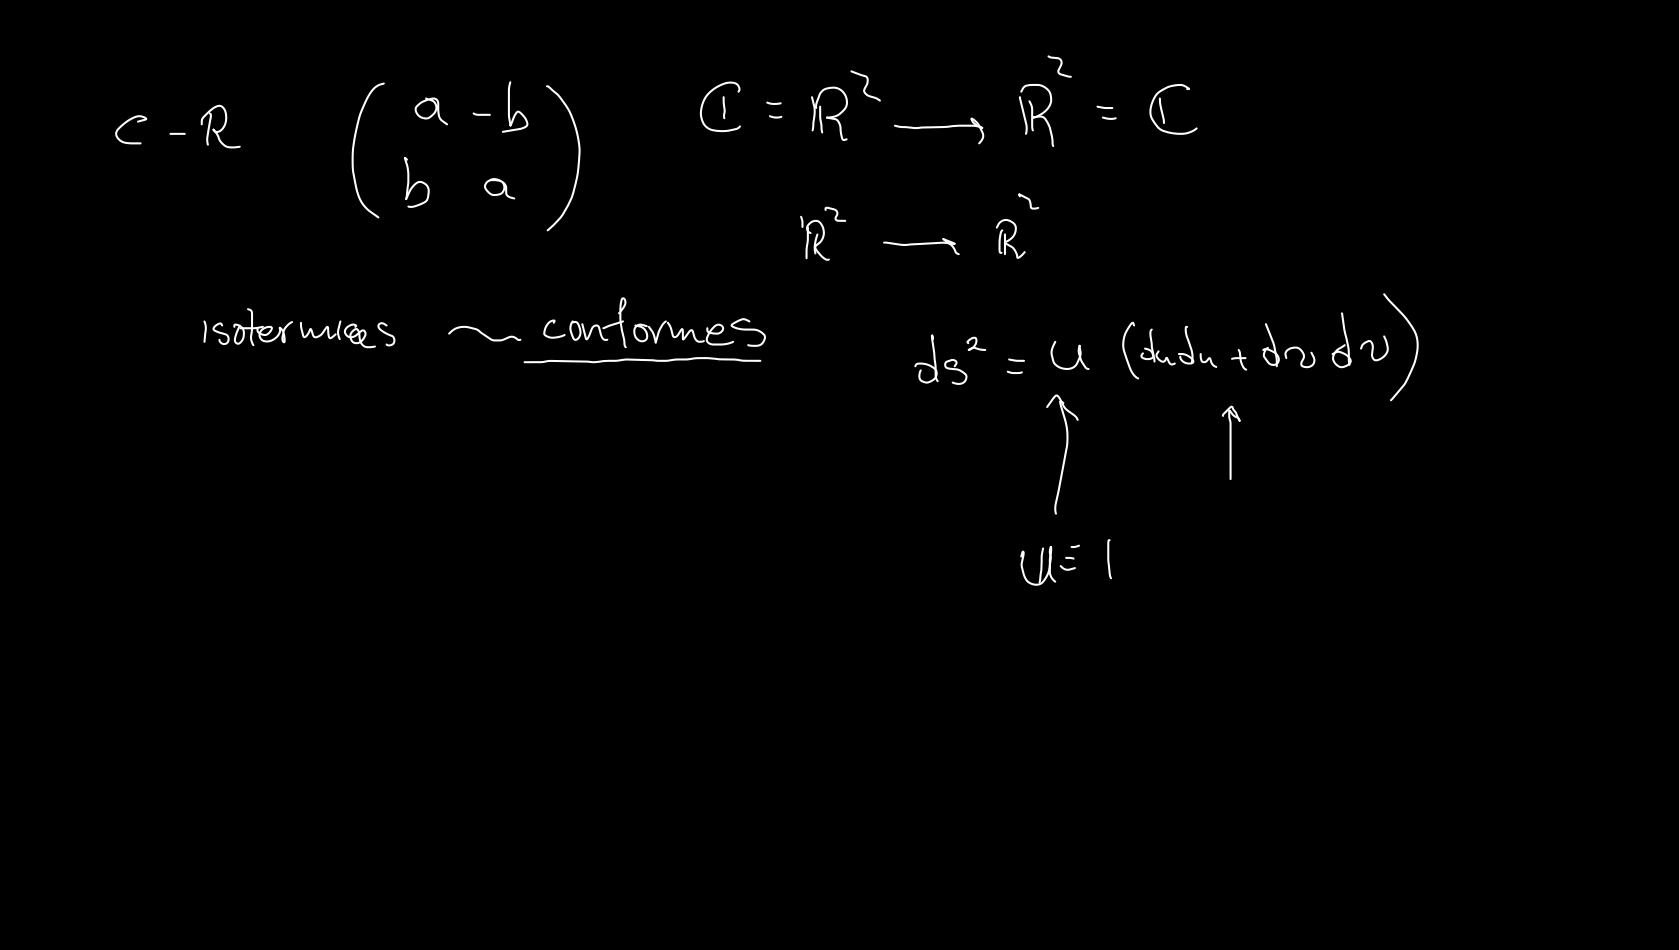 C-R ( a -b ℂ = ℝ² → ℝ² = ℂ
b a )
ℝ² → ℝ²
isotermicas ~ conformes ds² = u (dudu + dv dv)
↑ ↑
u ≡ 1